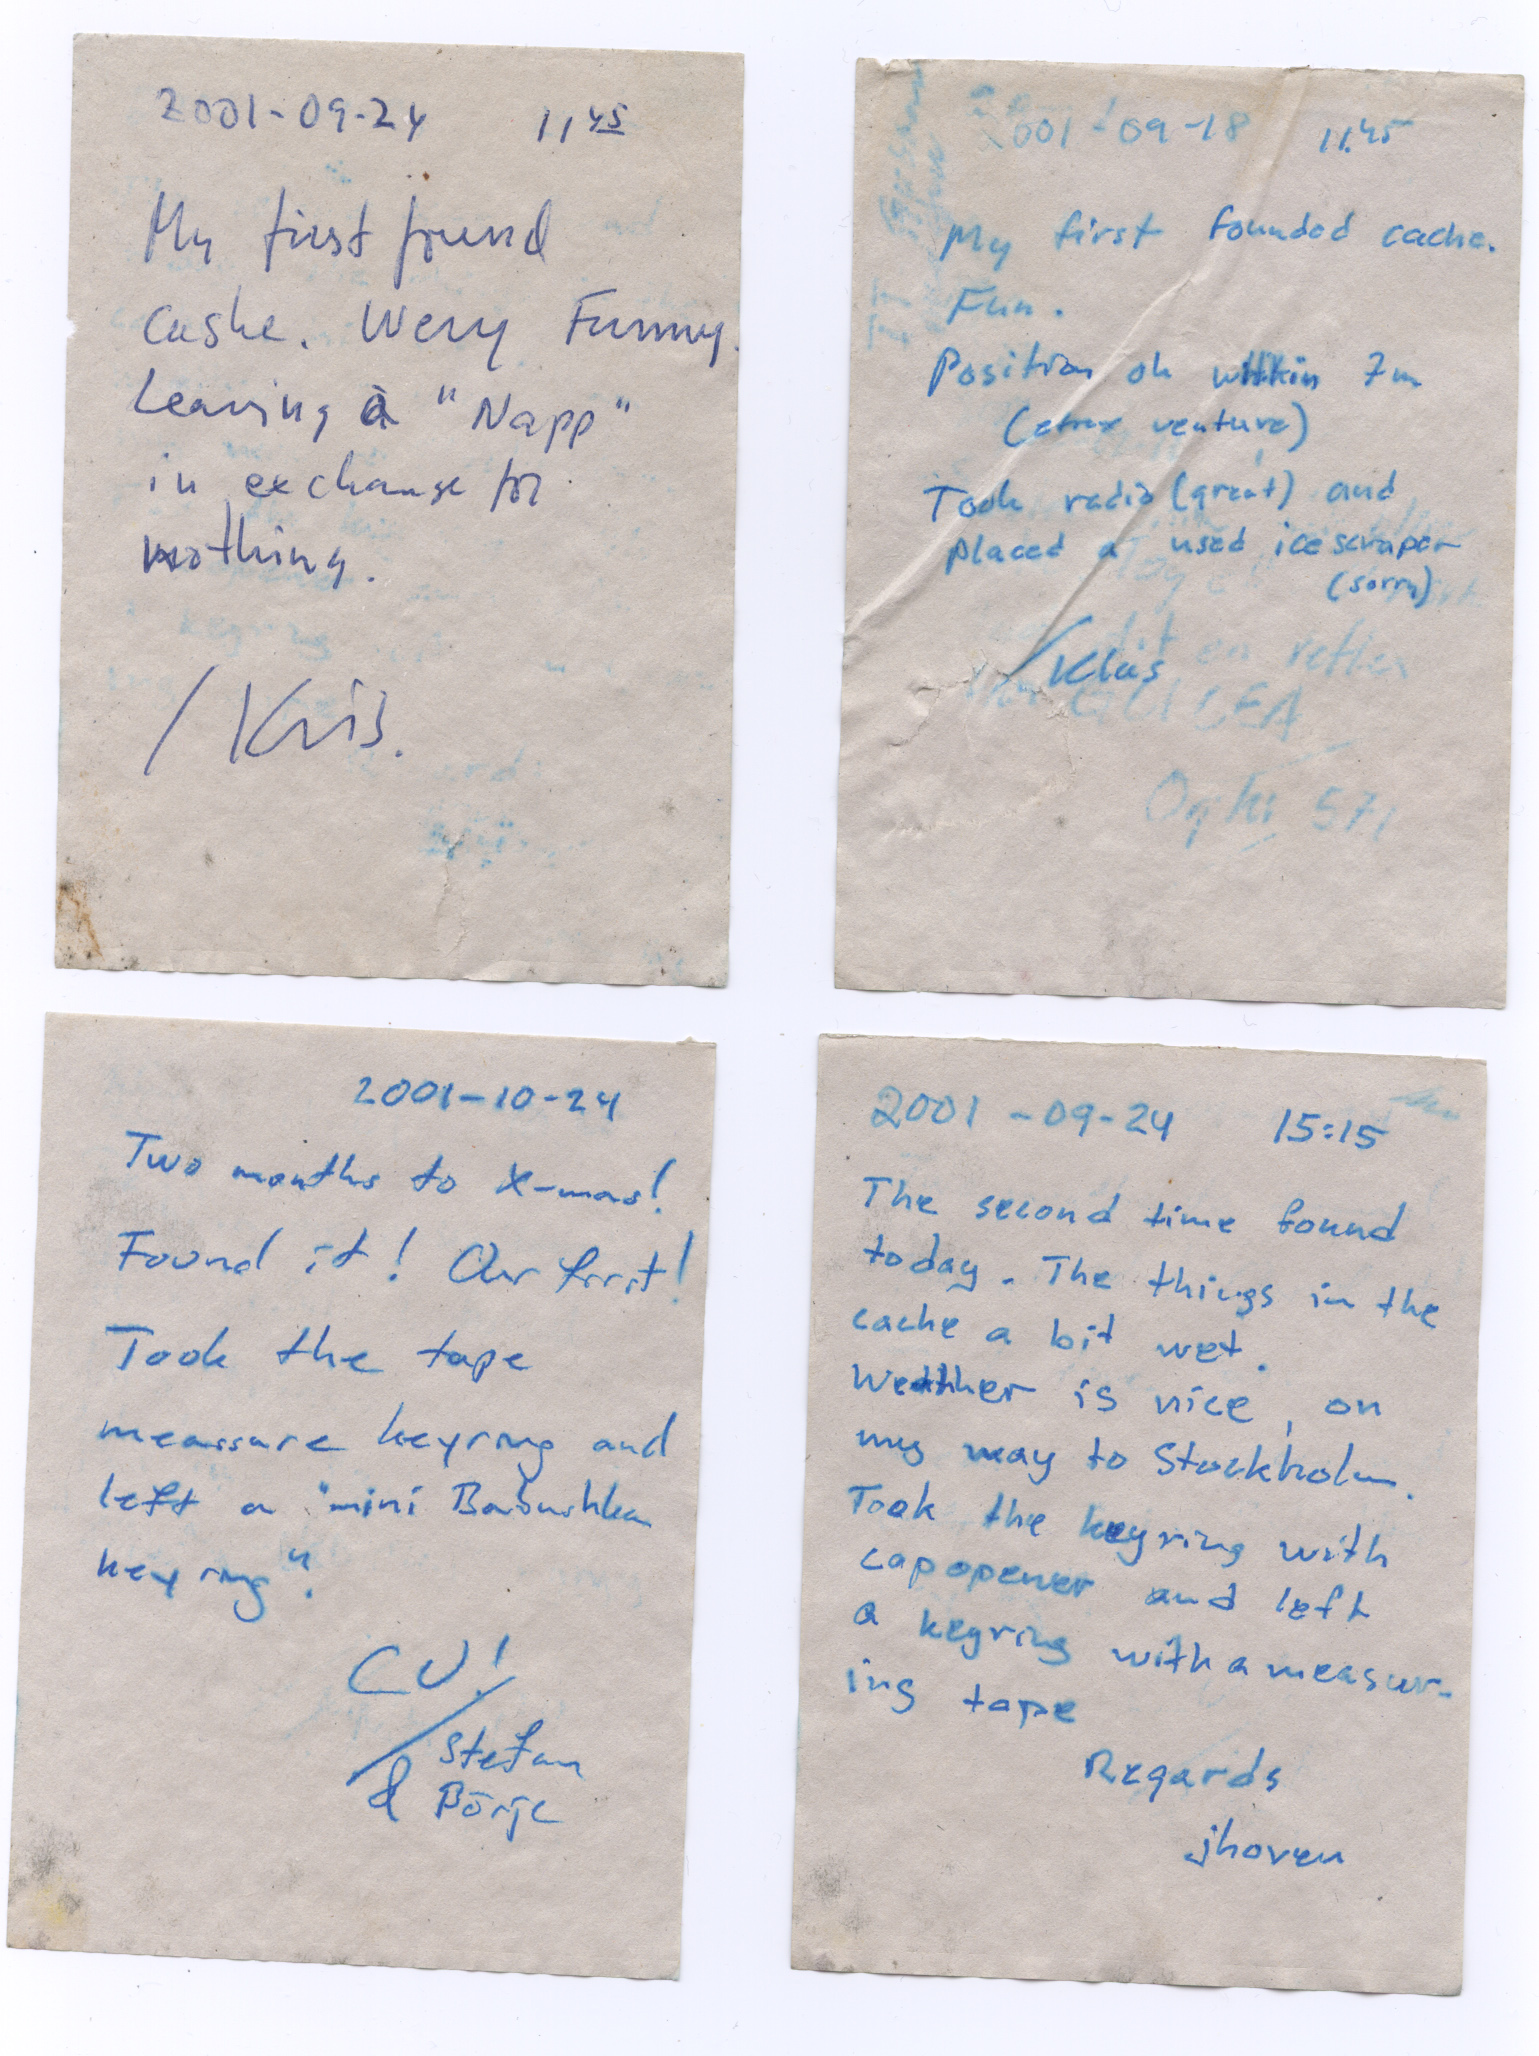 2001-09-24 11 45
My first found
cashe. Wery Funny.
Leaving a "Napp"
in exchange for
nothing.
/Kris.
2001-09-18 11.45
My first founded cache.
Fun.
Position ok within 7m
(etrex venture)
Took radio (great) and
placed a used icescraper
(sorry)
/Klas
2001-10-24
Two months to X-mas!
Found it! Our first!
Took the tape
meassure keyring and
left a "mini Babushka
keyring".
CU!
/Stefan
& Börje
2001-09-24 15:15
The second time found
today. The things in the
cache a bit wet.
Weather is nice, on
my way to Stockholm.
Took the keyring with
capopener and left
a keyring with a measur-
ing tape
Regards
jhoven